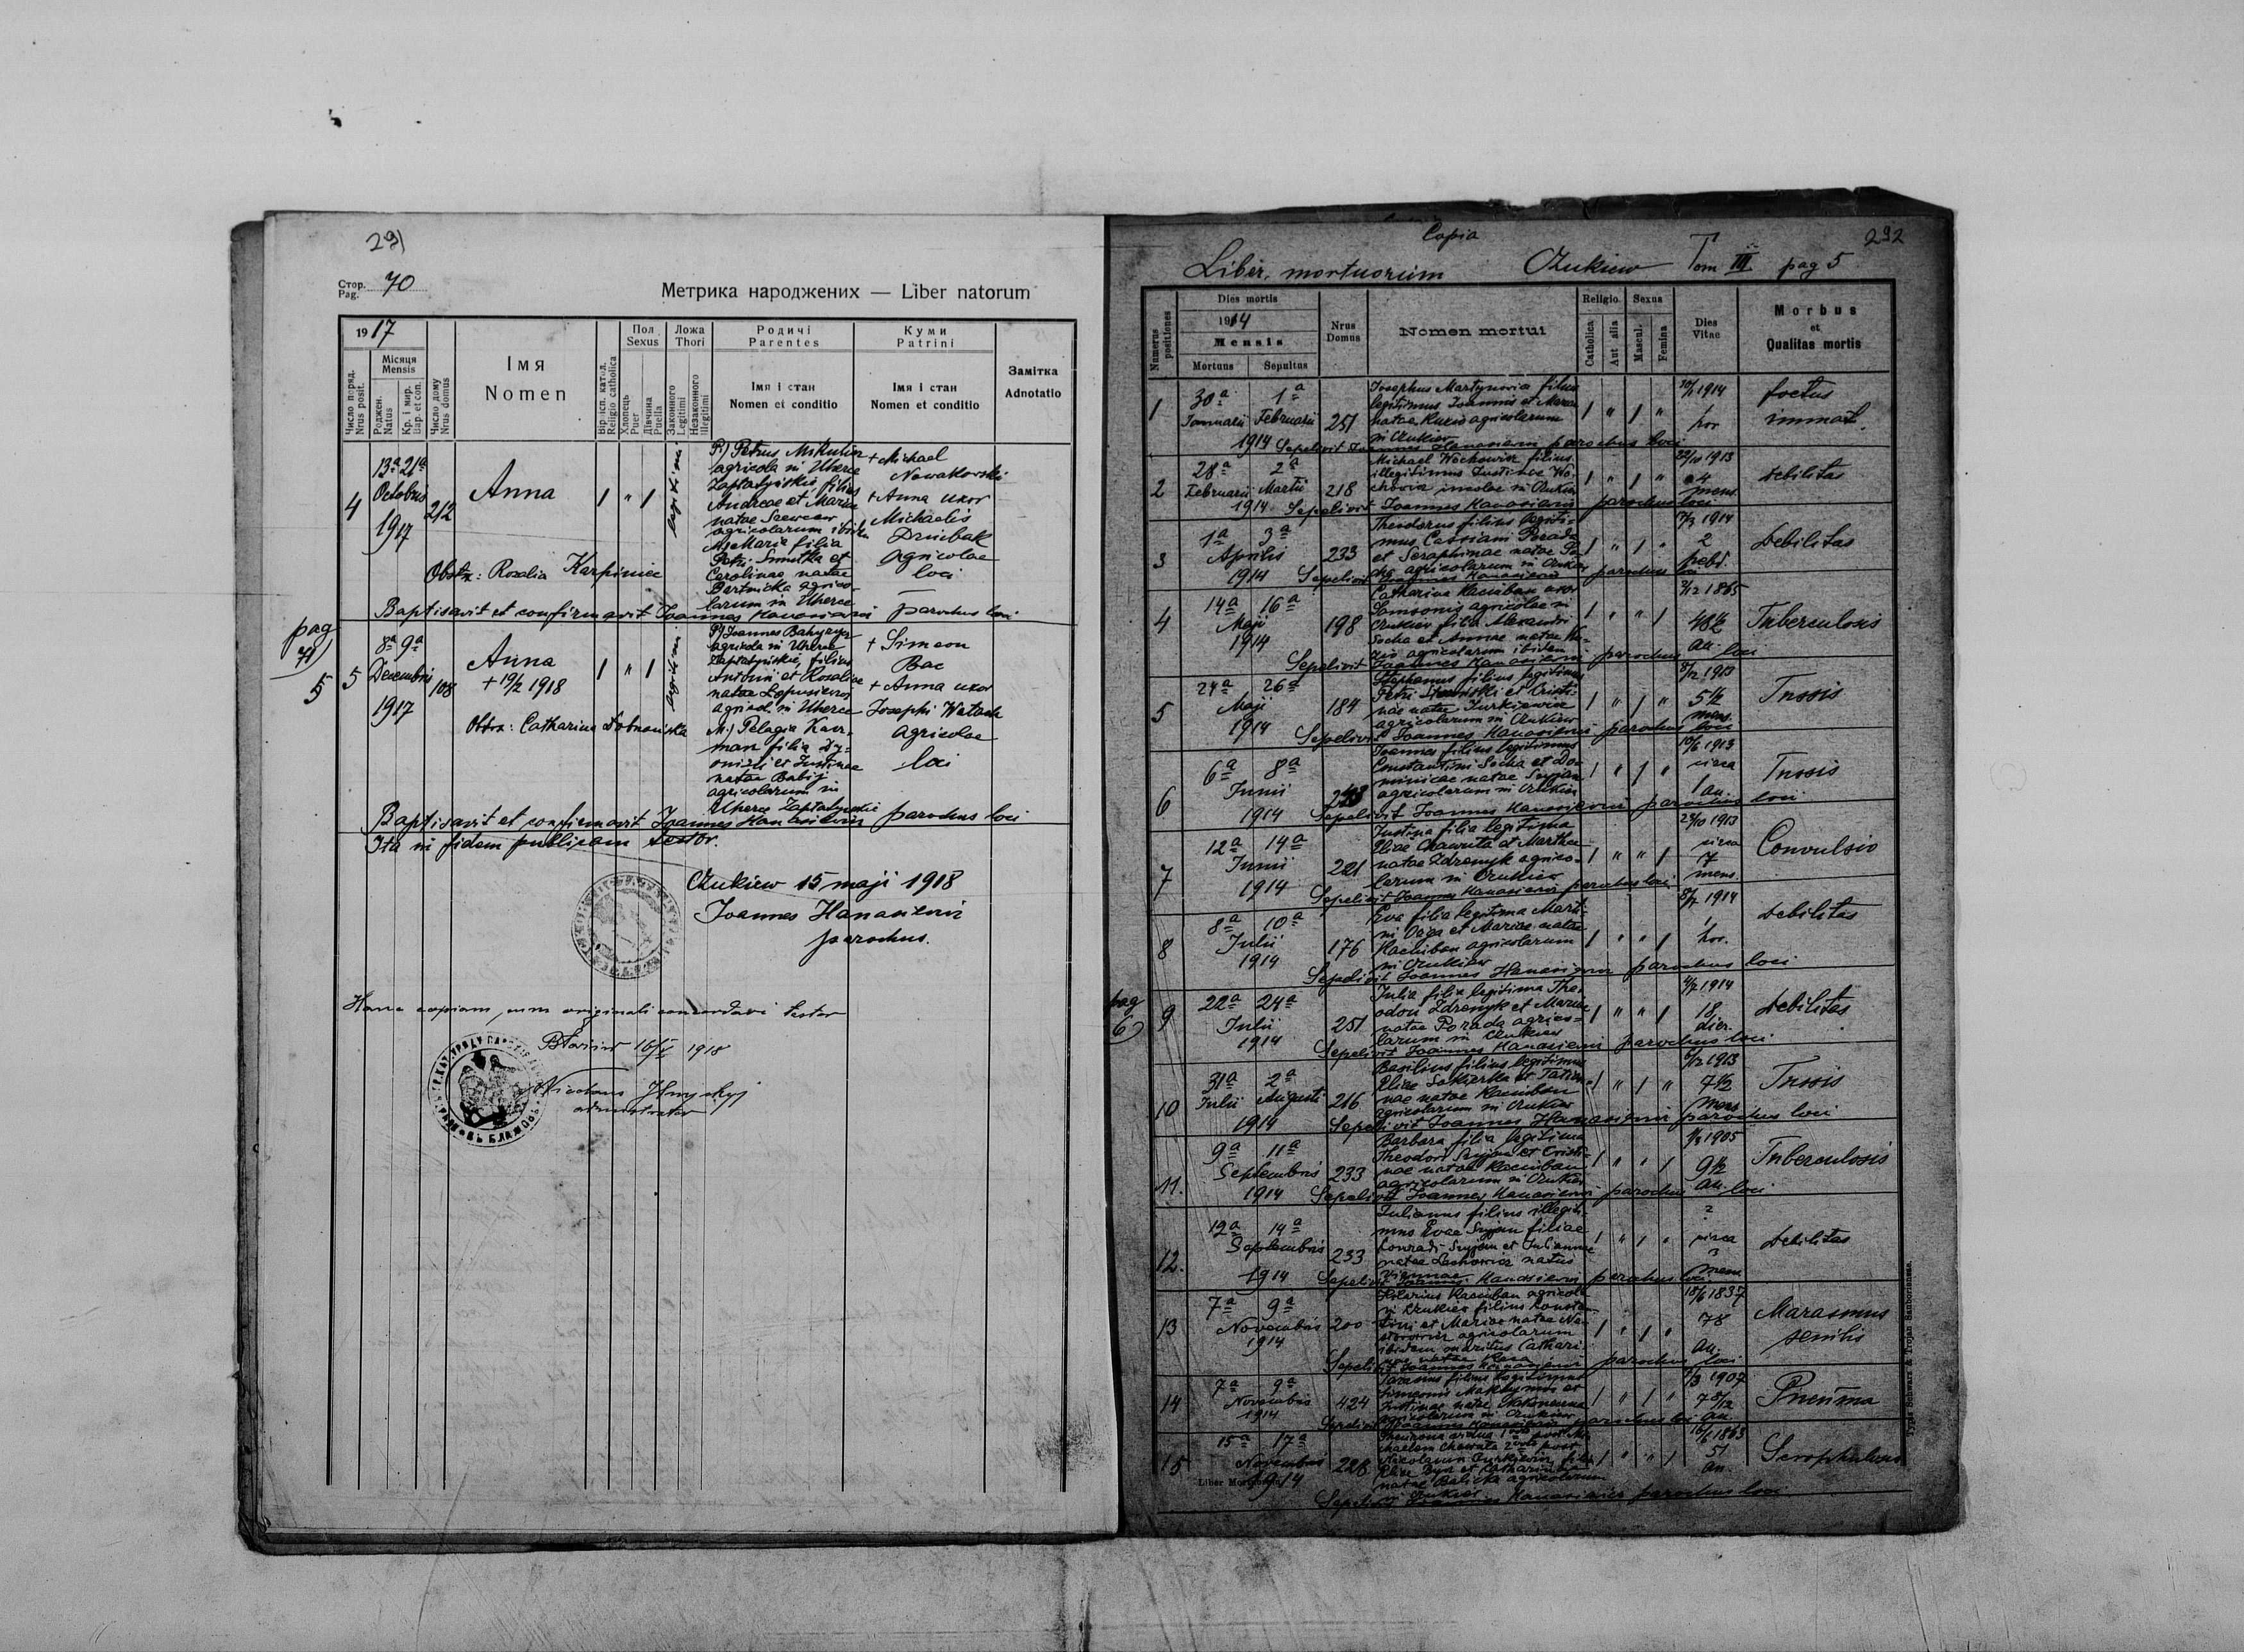 291
Стор.
Pag. 70
Метрика народжених — Liber natorum
1917
Число поряд.
Nrus posit.
Місяця
Mensis
Роджен.
Natus
Кр. і мир.
Bap. et con.
Число дому
Nrus domus
ІМЯ
Nomen
Вір. ісп. катол.
Religio catholica
Пол
Sexus
Хлопець
Puer
Дівчина
Puella
Ложа
Thori
Законного
Legitimi
Незаконного
Illegitimi
Родичі
Parentes
Імя і стан
Nomen et conditio
Куми
Patrini
Імя і стан
Nomen et conditio
Замітка
Adnotatio
4
13ª 21ª
Octobris
1917
212
Anna
legitimi
P.) Petrus Mikulin
agricola in Uherce
Zapłatyńskie filius
Andreae et Mariae
natae Szewców
agricolarum ibidem
M. Maria filia
Petri Smutka et
Carolinae natae
Bartnicka agrico-
larum in Uherce
+ Michael
Nowakowski
+ Anna uxor
Michaelis
Dziubak
agricolae
loci
Obstx: Rosalia Karpiniec
Baptisavit et confirmavit Joannes Hanasiewicz parochus loci
pag
71)
5
5
8ª 9ª
Decembris
1917
108
Anna
+ 19/2 1918
legitimi
P.) Joannes
agricola in Uherce
Zapłatyńskie, filius
et Rosaliae
natae
agricol. in Uherce
M.) Pelagia
filia Dy-
onizii et Justinae
natae Babij
agricolarum in
Uherce Zapłatyńskie
+ Simeon
Bac
+ Anna uxor
Josephi
agricolae
loci
Obstx: Catharina
Baptisavit et confirmavit Joannes Hanasiewicz parochus loci
Ita in fidem publicam testor.
Czukiew 15 maji 1918
Joannes Hanasiewicz
parochus.
Hanc copiam cum originali concordari testor
16/V 1918
Nicolaus
administrator
Copia
292
Liber mortuorum Czukiew Tom III pag 5
Numerus
positiones
Dies mortis
1914
Mensis
Mortuus
Sepultus
Nrus
Domus
Nomen mortui
Religio
Catholica
Aut alia
Sexus
Mascul.
Femina
Dies
Vitae
Morbus
et
Qualitas mortis
1
30ª 1ª
Januarii Februarii
1914
251
Josephus Martynowicz filius
legitimus Joannis et Mariae
natae agricolarum
in Czukiew
1914
hor
foetus
immat.
Sepelivit Joannes Hanasiewicz parochus loci
2
28ª 2ª
Februarii Martii
1914
218
Michael Wochowicz filius
illegitimus Justinae Wo-
chowicz incolae in Czukiew
22/10 1913
4
mens.
Debilitas
Sepelivit Joannes Hanasiewicz parochus loci
3
1ª 3ª
Aprilis
1914
233
Theodorus filius legiti-
mus Cassiani Porada
et Seraphinae natae
agricolarum in Czukiew
1914
2
hebd.
Debilitas
Sepelivit Joannes Hanasiewicz parochus loci
4
14ª 16ª
Maji
1914
198
Catharina Kaciuban uxor
Samsonis agricolae in
Czukiew filia Alexandri
Socha et Annae natae
agricolarum ibidem
1865
48½
an.
Tuberculosis
Sepelivit Joannes Hanasiewicz parochus loci
5
24ª 26ª
Maji
1914
184
Stephanus filius legitimus
Petri et Cristi-
nae natae Jurkiewicz
agricolarum in Czukiew
8/12 1913
5½
mens.
Tussis
Sepelivit Joannes Hanasiewicz parochus loci
6
6ª 8ª
Junii
1914
Joannes filius legitimus
Constantini Socha et Do-
minicae natae Szyjan
agricolarum in Czukiew
10/6 1913
circa
1 an.
Tussis
Sepelivit Joannes Hanasiewicz parochus loci
7
12ª 14ª
Junii
1914
221
Justina filia legitima
Eliae Chawuta et Marthae
natae Zdrenyk agrico-
larum in Czukiew
1913
circa
7
mens.
Convulsio
Sepelivit Joannes Hanasiewicz parochus loci
8
8ª 10ª
Julii
1914
176
Eva filia legitima Marti-
ni et Mariae natae
Kaciuban agricolarum
in Czukiew
8/7 1914
1
hor.
Debilitas
Sepelivit Joannes Hanasiewicz parochus loci
pag
6)
9
22ª 24ª
Julii
1914
251
Julia filia legitima The-
odori Zdrenyk et Mariae
natae Porada agrico-
larum in Czukiew
4/7 1914
18
dier.
Debilitas
Sepelivit Joannes Hanasiewicz parochus loci
10
31ª 2ª
Julii Augusti
1914
216
Basilius filius legitimus
Eliae et Tatia-
nae natae Kaciuban
agricolarum in Czukiew
1913
7½
mens
Tussis
Sepelivit Joannes Hanasiewicz parochus loci
11.
9ª 11ª
Septembris
1914
233
Barbara filia legitima
Theodori Szyjan et Cristi-
nae natae Kaciuban
agricolarum in Czukiew
1905
9½
an.
Tuberculosis
Sepelivit Joannes Hanasiewicz parochus loci
12.
12ª 14ª
Septembris
1914
233
Julianus filius illegiti-
mus Evae Szyjan filiae
Conradi Szyjan et Julianae
natae Lachowicz natus
Viennae
?
circa
3
mens
Debilitas
Sepelivit Joannes Hanasiewicz parochus loci
13
7ª 9ª
Novembris
1914
200
Hilarius Kaciuban agricola
in Czukiew filius Constan-
tini et Mariae natae Ne-
storowicz agricolarum
ibidem maritus Cathari-
nae natae
18/6 1837
78
an.
Marasmus
senilis
Sepelivit Joannes Hanasiewicz parochus loci
14
7ª 9ª
Novembris
1914
424
Tarasius filius legitimus
Simeonis et
Justinae natae
agricolarum in Czukiew
1/3 1907
7 8/12
an
Pneuma
Sepelivit Joannes Hanasiewicz parochus loci
15
15ª 17ª
Novembris
1914
228
vidua 1 voto post Mi-
chaelem Chawuta 2 voto post
Nicolaum Jurkiewicz filia
Eliae et Catharinae
natae Balicka agricolarum
in Czukiew
1863
51
an.
Scrophulosis
Sepelivit Joannes Hanasiewicz parochus loci
Liber Mortuorum
Typis Schwarz & Trojan Samboriensae.